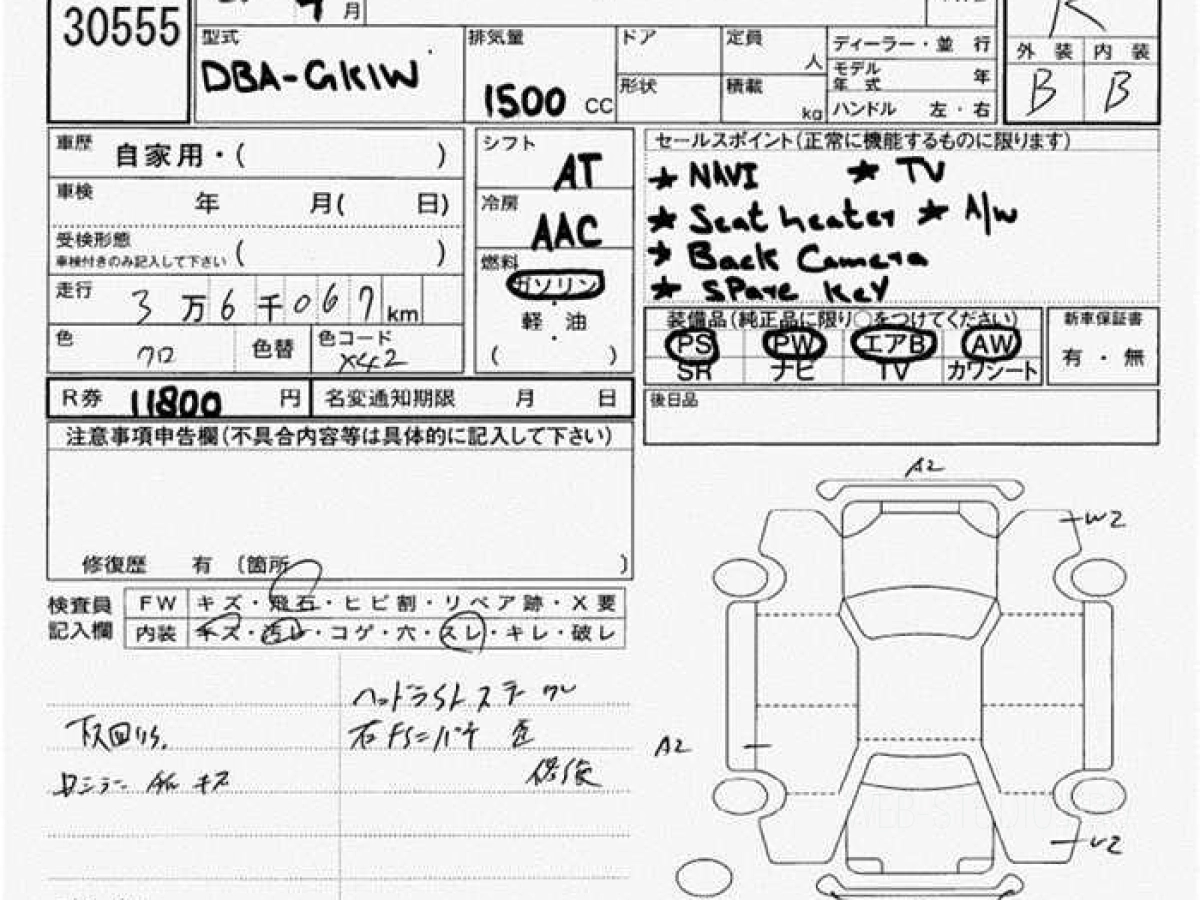 30555
月
型式
DBA-GK1W
排気量
1500 CC
ドア
形状
定員
人
積載
kg
ディーラー・並 行
モデル年式 年
ハンドル 左・右
R
外 装 内 装
B B
車歴 自家用・( )
車検 年 月( 日)
受検形態 ( )
車検付きのみ記入して下さい
走行 3万6千067km
色 クロ
色替
色コード X42
シフト
AT
冷房
AAC
燃料
ガソリン
軽 油
( ・ )
セールスポイント(正常に機能するものに限ります)
★ NAVI ★ TV
★ Seat heater ★ A/W
★ Back Camera
★ SPare KeY
装備品(純正品に限り○をつけてください)
PS PW エアB AW
SR ナビ TV カワシート
新車保証書
有・無
R券 11800 円
名変通知期限 月 日
後日品
注意事項申告欄(不具合内容等は具体的に記入して下さい)
修復歴 有 (箇所 )
検査員
記入欄
FW キズ・飛石・ヒビ割・リペア跡・X要
内装 キズ・汚レ・コゲ・穴・スレ・キレ・破レ
A2
W2
A2
U2
下回りサ
キズ
修復